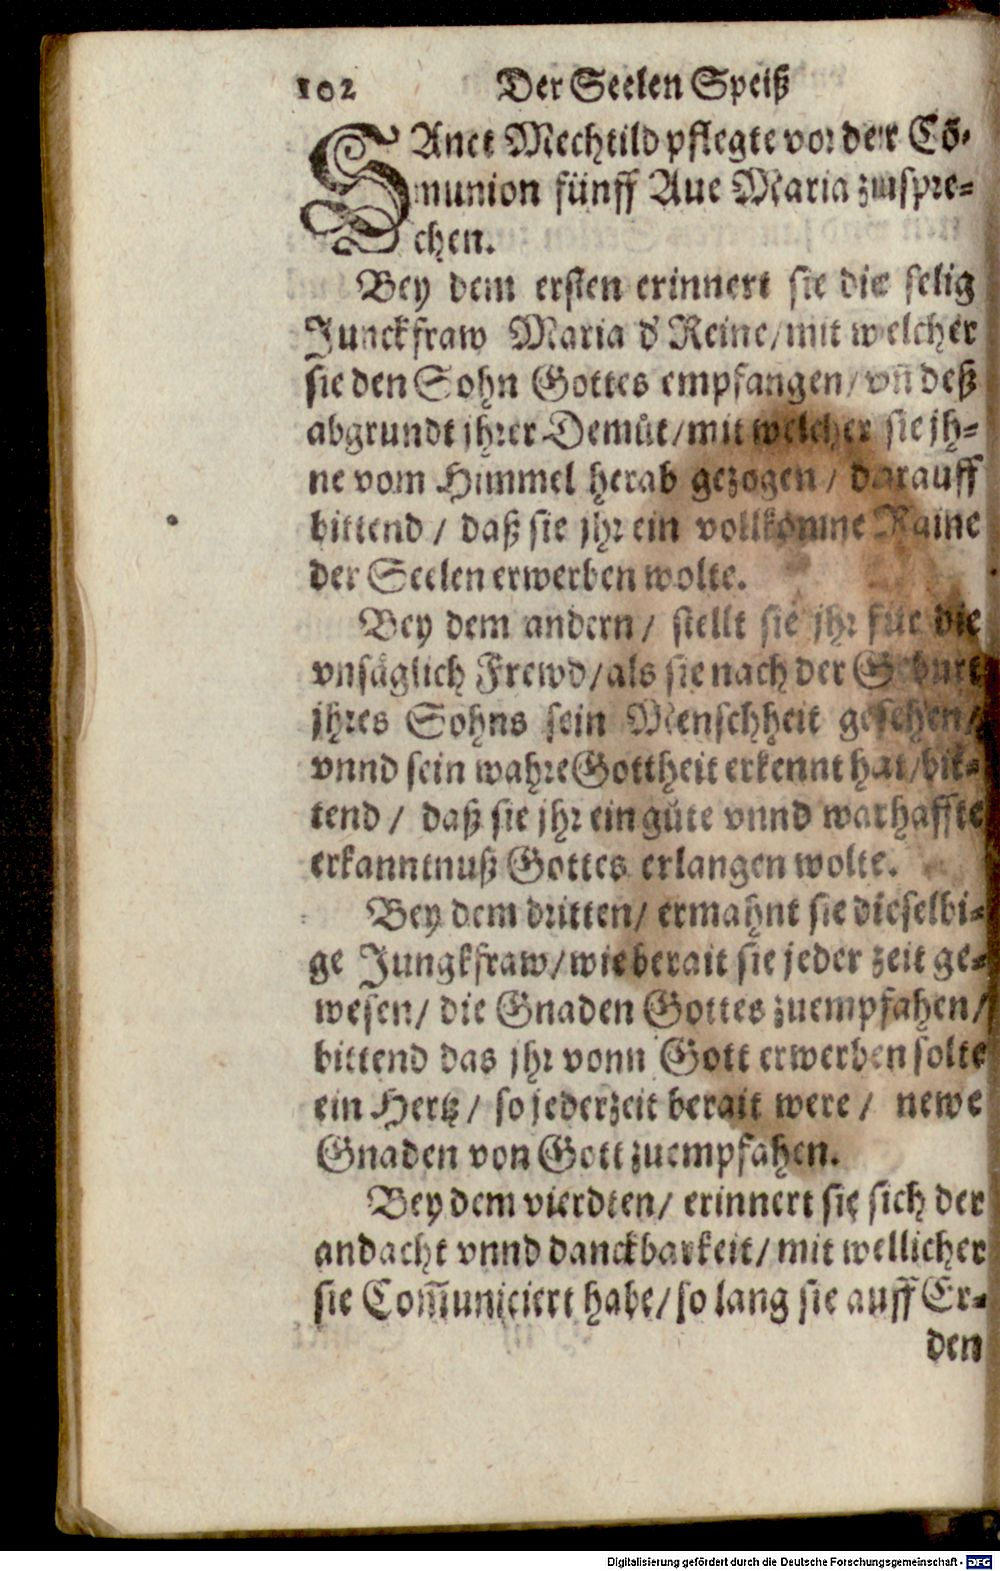 102 Der Seelen Speiß
SAnct Mechtild pflegte vor der Cō-
munion fünff Aue Maria zuspre-
chen.
Bey dem ersten erinnert sie die selig
Junckfraw Maria d' Reine/mit welcher
sie den Sohn Gottes empfangen/vñ deß
abgrundt jhrer Demůt/mit welcher sie jh-
ne vom Himmel herab gezogen / darauff
bittend / daß sie jhr ein vollkōmne Raine
der Seelen erwerben wolte.
Bey dem andern/ stellt sie jhr für die
vnsäglich Frewd/als sie nach der Geburt
jhres Sohns sein Menschheit gesehen/
vnnd sein wahre Gottheit erkennt hat/bit-
tend / daß sie jhr ein gůte vnnd warhaffte
erkanntnuß Gottes erlangen wolte.
Bey dem dritten/ ermahnt sie dieselbi-
ge Jungkfraw/wie berait sie jeder zeit ge-
wesen/ die Gnaden Gottes zuempfahen/
bittend das jhr vonn Gott erwerben solte
ein Hertz/ so jederzeit berait were / newe
Gnaden von Gott zuempfahen.
Bey dem vierdten/ erinnert sie sich der
andacht vnnd danckbarkeit/ mit wellicher
sie Com̃uniciert habe/ so lang sie auff Er-
den
Digitalisierung gefördert durch die Deutsche Forschungsgemeinschaft - DFG